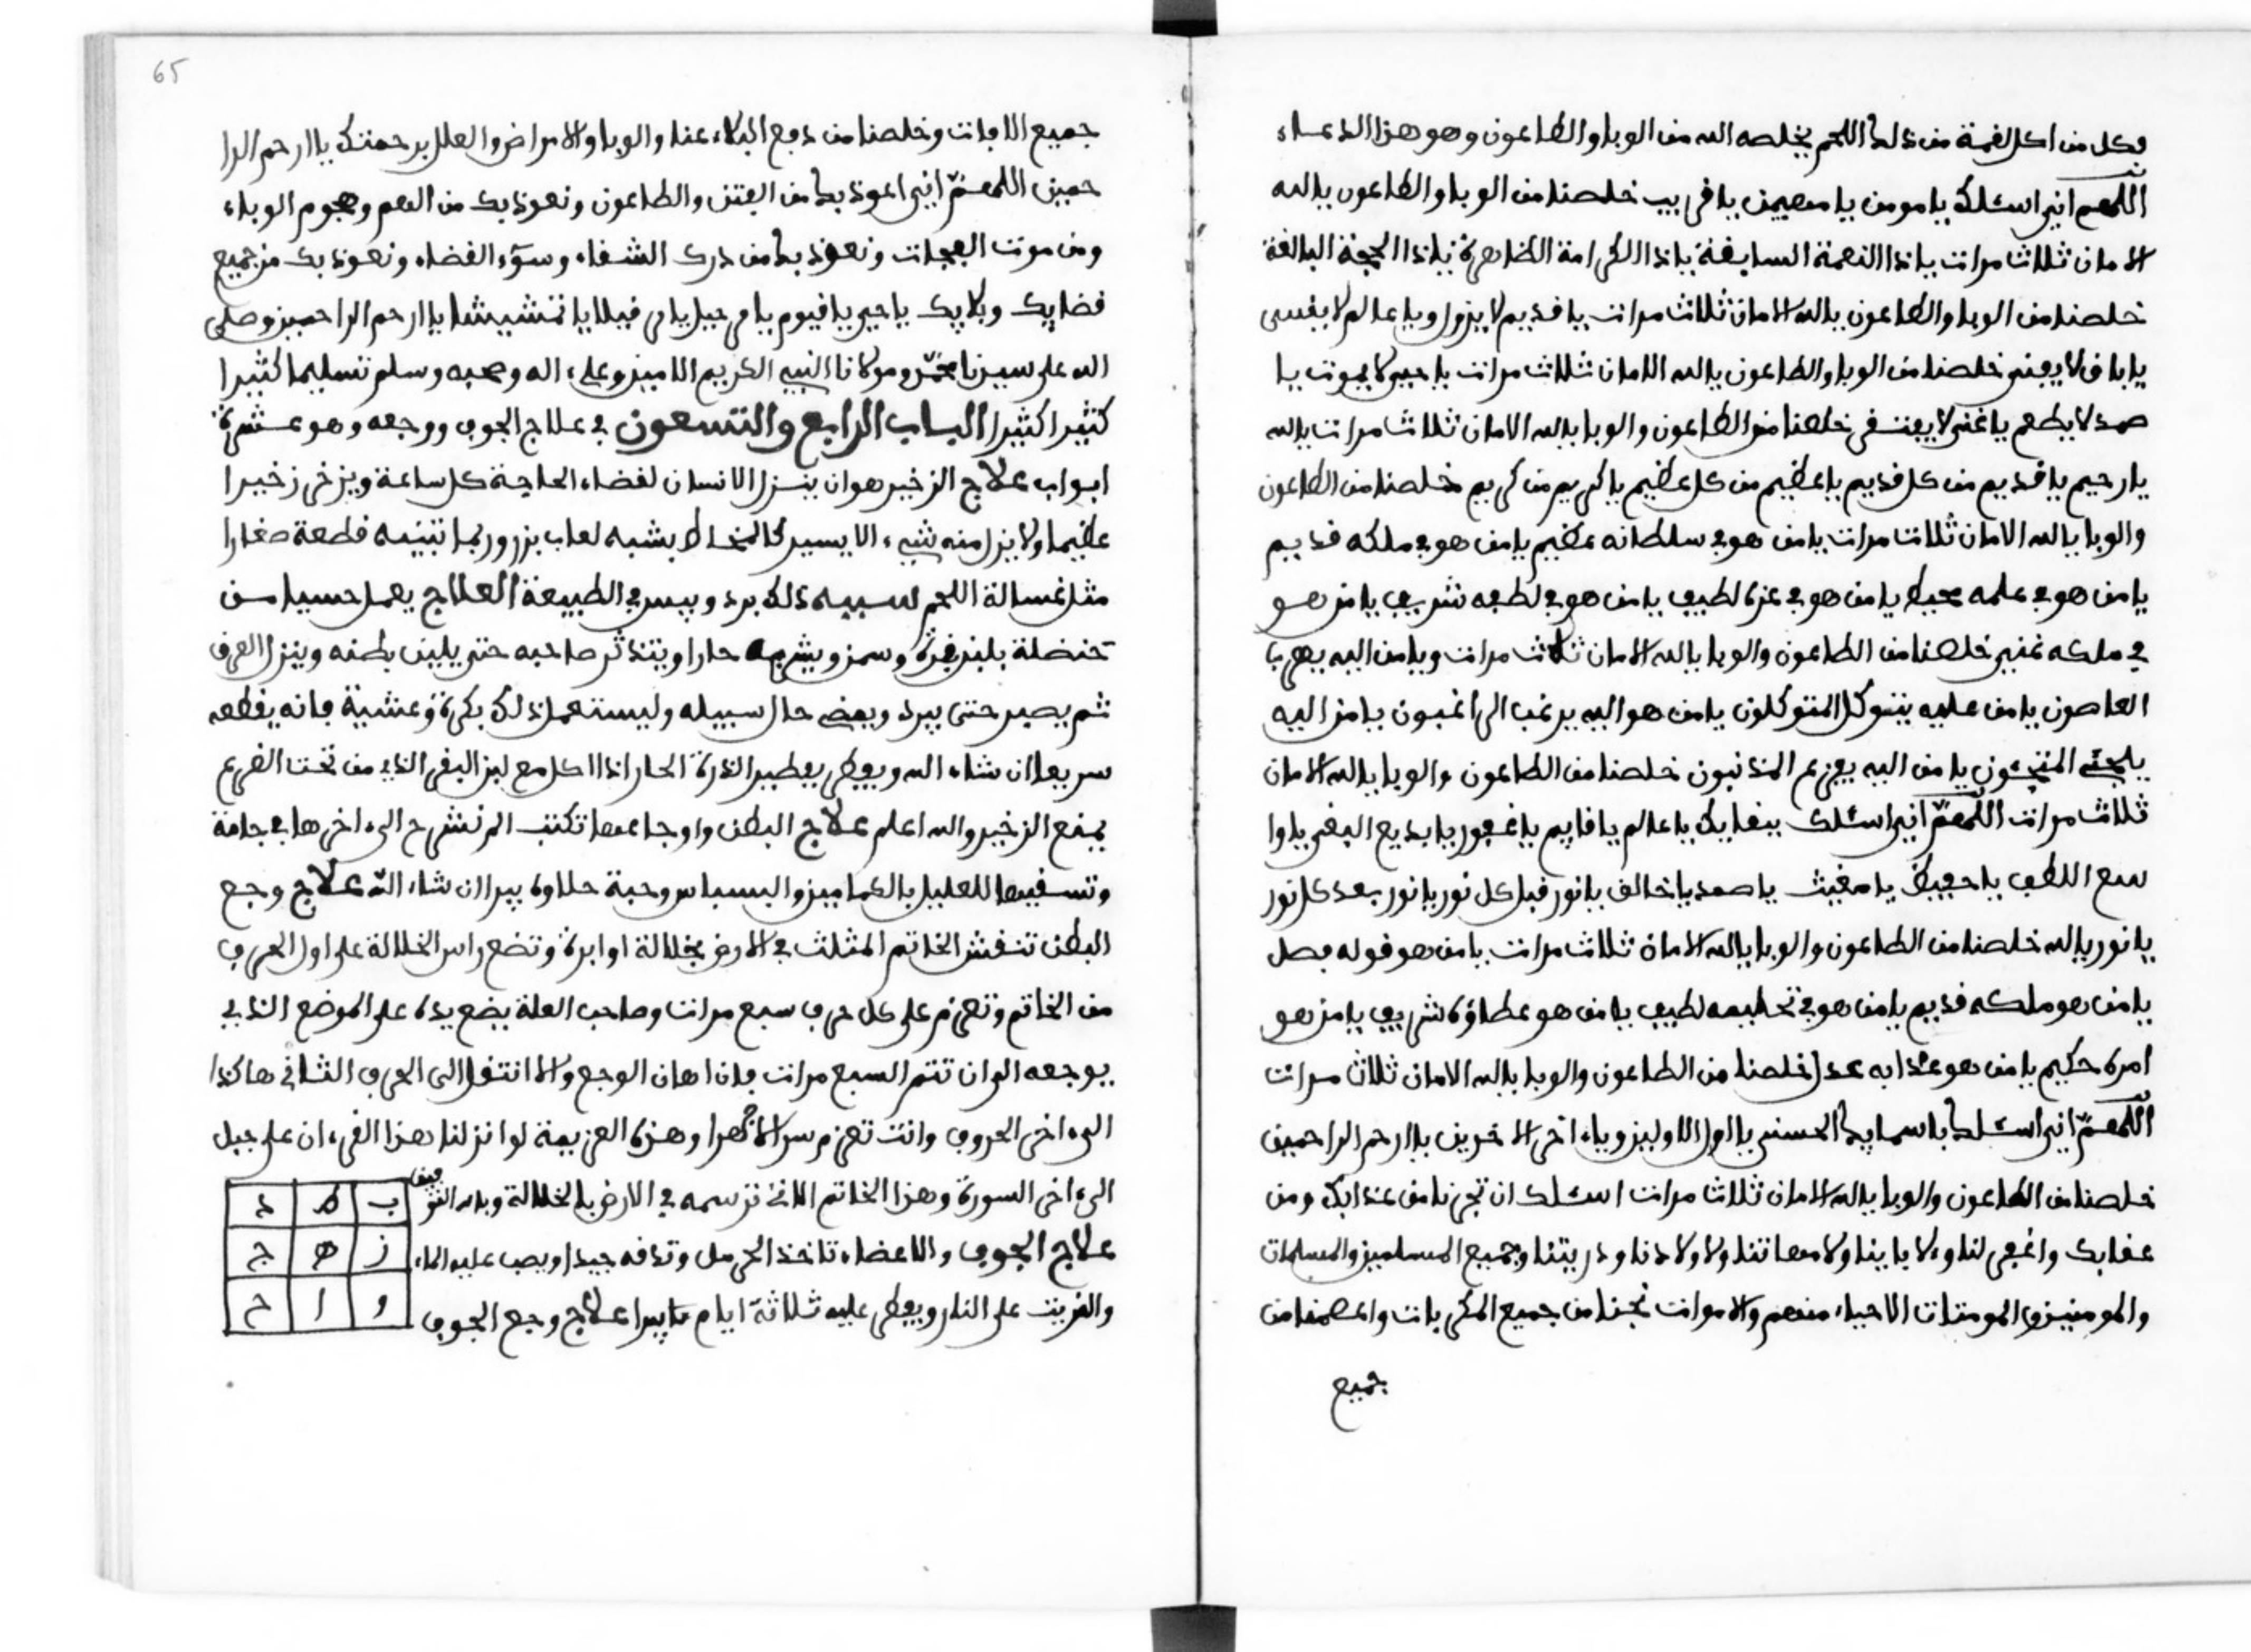 فكل من اكل لقمة من ذلك اللحم يخلصه الله من الوبا والطاعون وهو هذا الدعاء
اللهم اني اسئلك يا مومن يا مهيمن يا قريب خلصنا من الوبا والطاعون يا الله
الامان ثلاث مرات يا ذا النعمة السابغة يا ذا الكرامة الظاهرة يا ذا الحجة البالغة
خلصنا من الوبا والطاعون يا الله الامان ثلاث مرات يا قديم لا يزول ويا عالم لا ينسى
يا باق لا يفنى خلصنا من الوبا والطاعون يا الله الامان ثلاث مرات يا حي لا يموت يا
صمد لا يطعم يا غني لا يفتقر خلصنا من الطاعون والوبا يا الله الامان ثلاث مرات يا الله
يا رحيم يا قديم من كل قديم يا عظيم من كل عظيم يا كريم من كريم خلصنا من الطاعون
والوبا يا الله الامان ثلاث مرات يا من هو في سلطانه عظيم يا من هو في ملكه قديم
يا من هو في علمه محيط يا من هو في عزه لطيف يا من هو في لطفه شريف يا من هو
في ملكه غني خلصنا من الطاعون والوبا يا الله الامان ثلاث مرات ويا من اليه يهرب
العاصون يا من عليه يتوكل المتوكلون يا من هو اليه يرغب الراغبون يا من اليه
يلجئ الملتجئون يا من اليه يفزع المذنبون خلصنا من الطاعون والوبا يا الله الامان
ثلاث مرات اللهم اني اسئلك ببقايك يا عالم يا قايم يا غفور يا بديع البقى يا وا
سع اللطف يا حفيظ يا مغيث يا صمد يا خالق يا نور قبل كل نور يا نور بعد كل نور
يا نور يا الله خلصنا من الطاعون والوبا يا الله الامان ثلاث مرات يا من هو قوله فصل
يا من هو ملكه قديم يا من هو في تحليمه لطيف يا من هو عطاؤه شريف يا من هو
امره حكيم يا من هو عذابه عدل خلصنا من الطاعون والوبا يا الله الامان ثلاث مرات
اللهم اني اسئلك باسمايك الحسنى يا اول الاولين ويا ءاخر الاخرين يا ارحم الراحمين
خلصنا من الطاعون والوبا يا الله الامان ثلاث مرات اسئلك ان تجرنا من عذابك ومن
عقابك واغفر لنا ولءابائنا ولامهاتنا ولاولادنا وذريتنا وجميع المسلمين والمسلمات
والمومنين والمومنات الاحياء منهم والاموات نجنا من جميع الكربات واعصمنا من
جميع
65
جميع الافات وخلصنا من دفع البلاء عنا والوبا والامراض والعلل برحمتك يا ارحم الرا
حمين اللهم اني اعوذ بك من الفتن والطاعون ونعوذ بك من الهم وهجوم الوباء
ومن موت الفجات ونعوذ بك من درك الشقاء وسوء القضاء ونعوذ بك من جميع
قضايك وبلايك يا حي يا قيوم يا يا ارحم الراحمين وصلى
الله على سيدنا محمد ومولانا النبي الكريم الامين وعلى اله وصحبه وسلم تسليما كثيرا
كثيرا كثيرا الباب الرابع والتسعون في علاج الجوف ووجعه وهو عشرة
ابواب علاج الزخير هو ان ينزل الانسان لقضاء الحاجة كل ساعة ويزخر زخيرا
عظيما ولا ينزل منه شيء الا يسير كالمخاط يشبه لعاب بزر وربما تبينه قطعة صغارا
مثل غسالة اللحم سببه ذلك برد ويبس في الطبيعة العلاج يعمل حسيا من
حنضلة بلبن بقرة وسمن ويشربه حارا ويتدثر صاحبه حتى يلين بطنه وينزل العرق
ثم يصبر حتى يبرد ويمضي حال سبيله وليستعمل ذلك بكرة وعشية فانه يقطعه
سريعا ان شاء الله ويعطى بطير الذرة الحار اذا اكل مع لبن البقر الذي من تحت الضرع
ينفع الزخير والله اعلم علاج البطن واوجاعها تكتب الم نشرح الى اخرها في جامة
وتسقيها للعليل بالكمامين والبسباس وحبة حلاوه يبرا ان شاء الله علاج وجع
البطن تنقش الخاتم المثلث في الارض بخلالة او ابرة وتضع راس الخلالة على اول الحرف
من الخاتم وتعزم على كل حرف سبع مرات وصاحب العلة يضع يده على الموضع الذي
يوجعه الى ان تتم السبع مرات فان اهان الوجع والا انتقل الى الحرف الثاني هاكذا
الى ءاخر الحروف وانت تعزم سرا لا جهرا وهذه العزيمة لو انزلنا هذا القرءان على جبل
الى ءاخر السورة وهذا الخاتم الاتي ترسمه في الارض بالخلالة وبالله التوفيق
علاج الجوف والاعضاء تاخذ الحرمل وتدقه جيدا ويصب عليه الماء
والزيت على النار ويعطى عليه ثلاثة ايام يبرا علاج وجع الجوف
ب ط د
ز ه ج
و ا ح